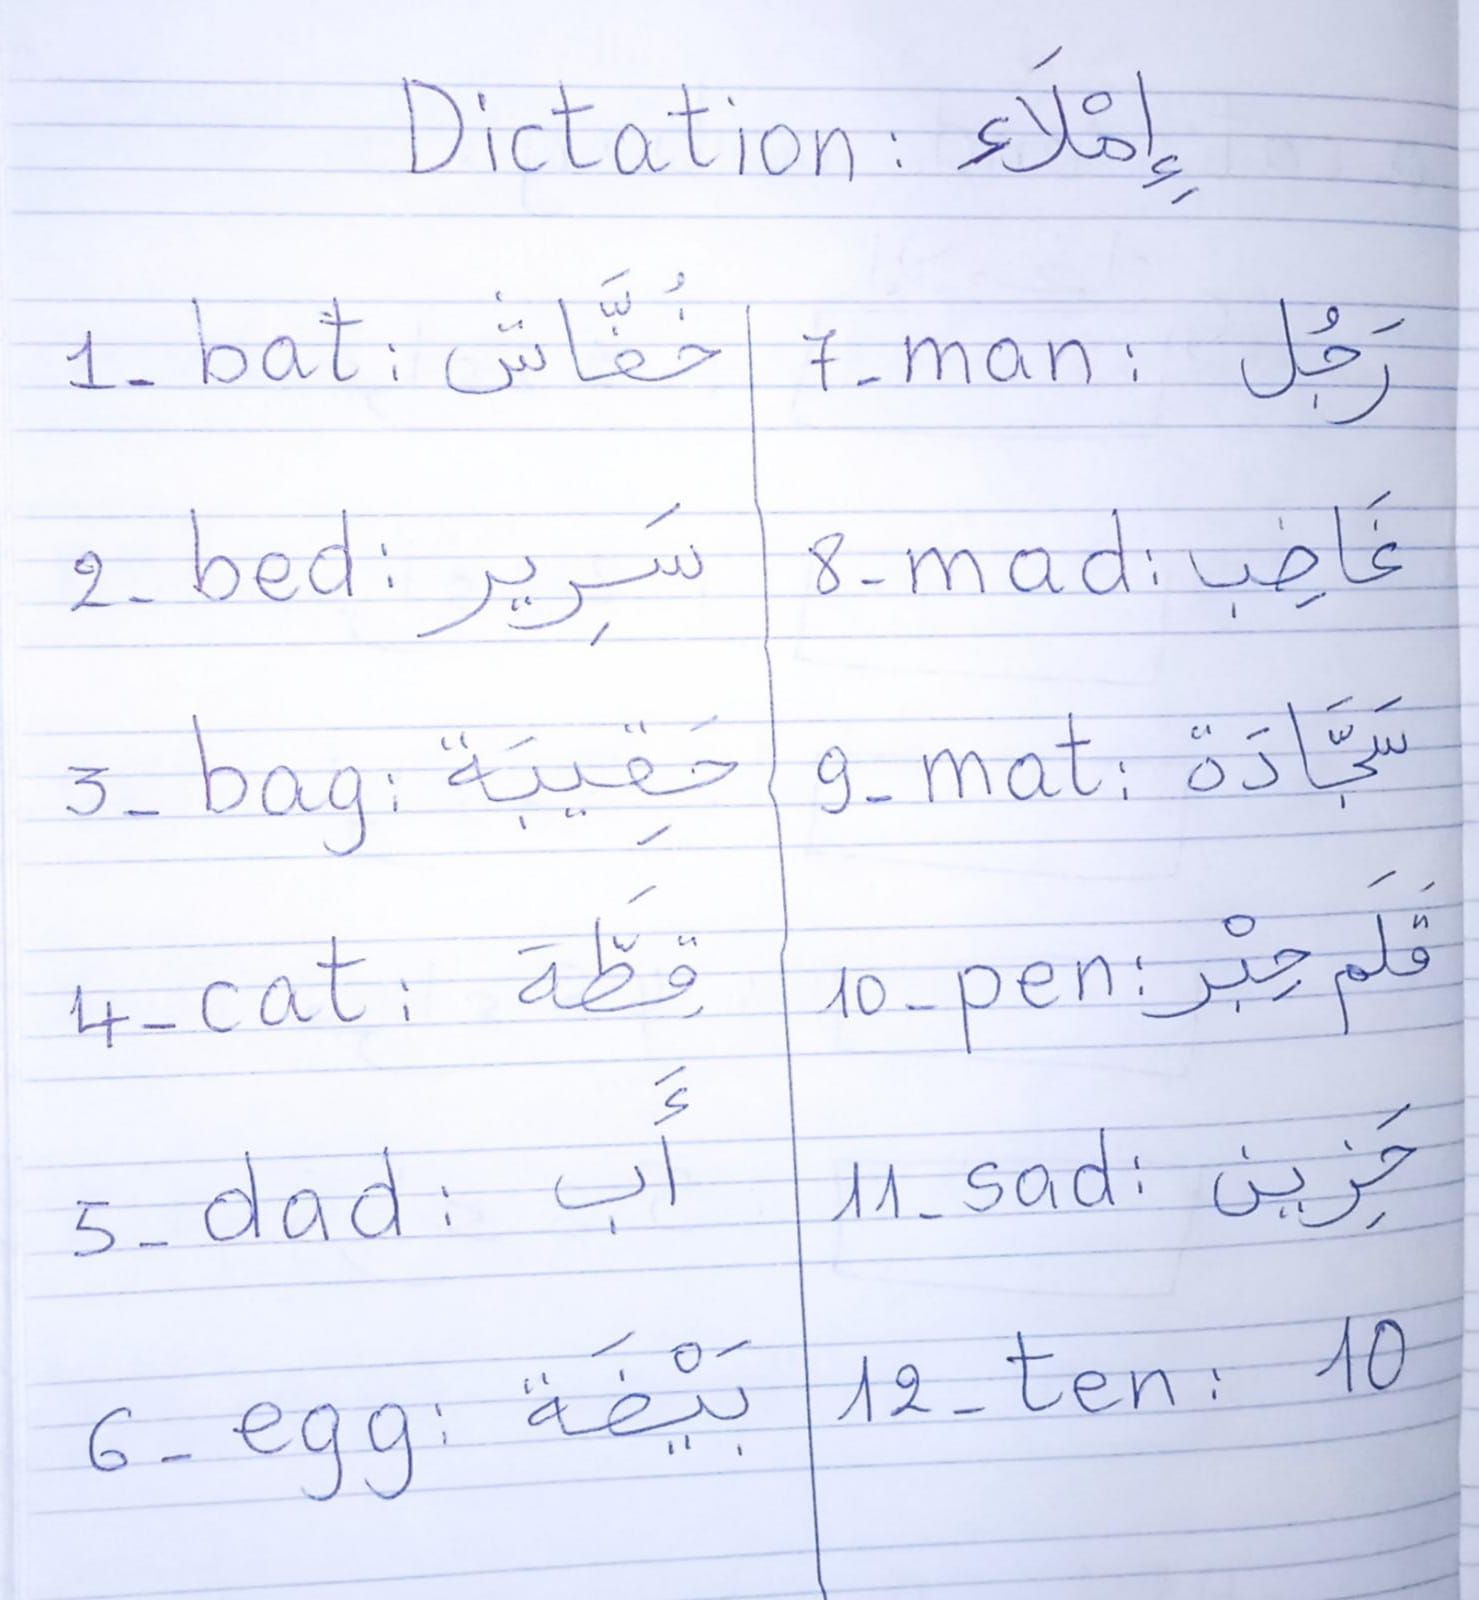 Dictation: إِمْلَاء
1_ bat: خُفَّاش
2_ bed: سَرِير
3_ bag: حَقِيبَة
4_ cat: قِطَّة
5_ dad: أَب
6_ egg: بَيْضَة
7_ man: رَجُل
8_ mad: غَاضِب
9_ mat: سَجَّادَة
10_ pen: قَلَم حِبْر
11_ sad: حَزِين
12_ ten: 10